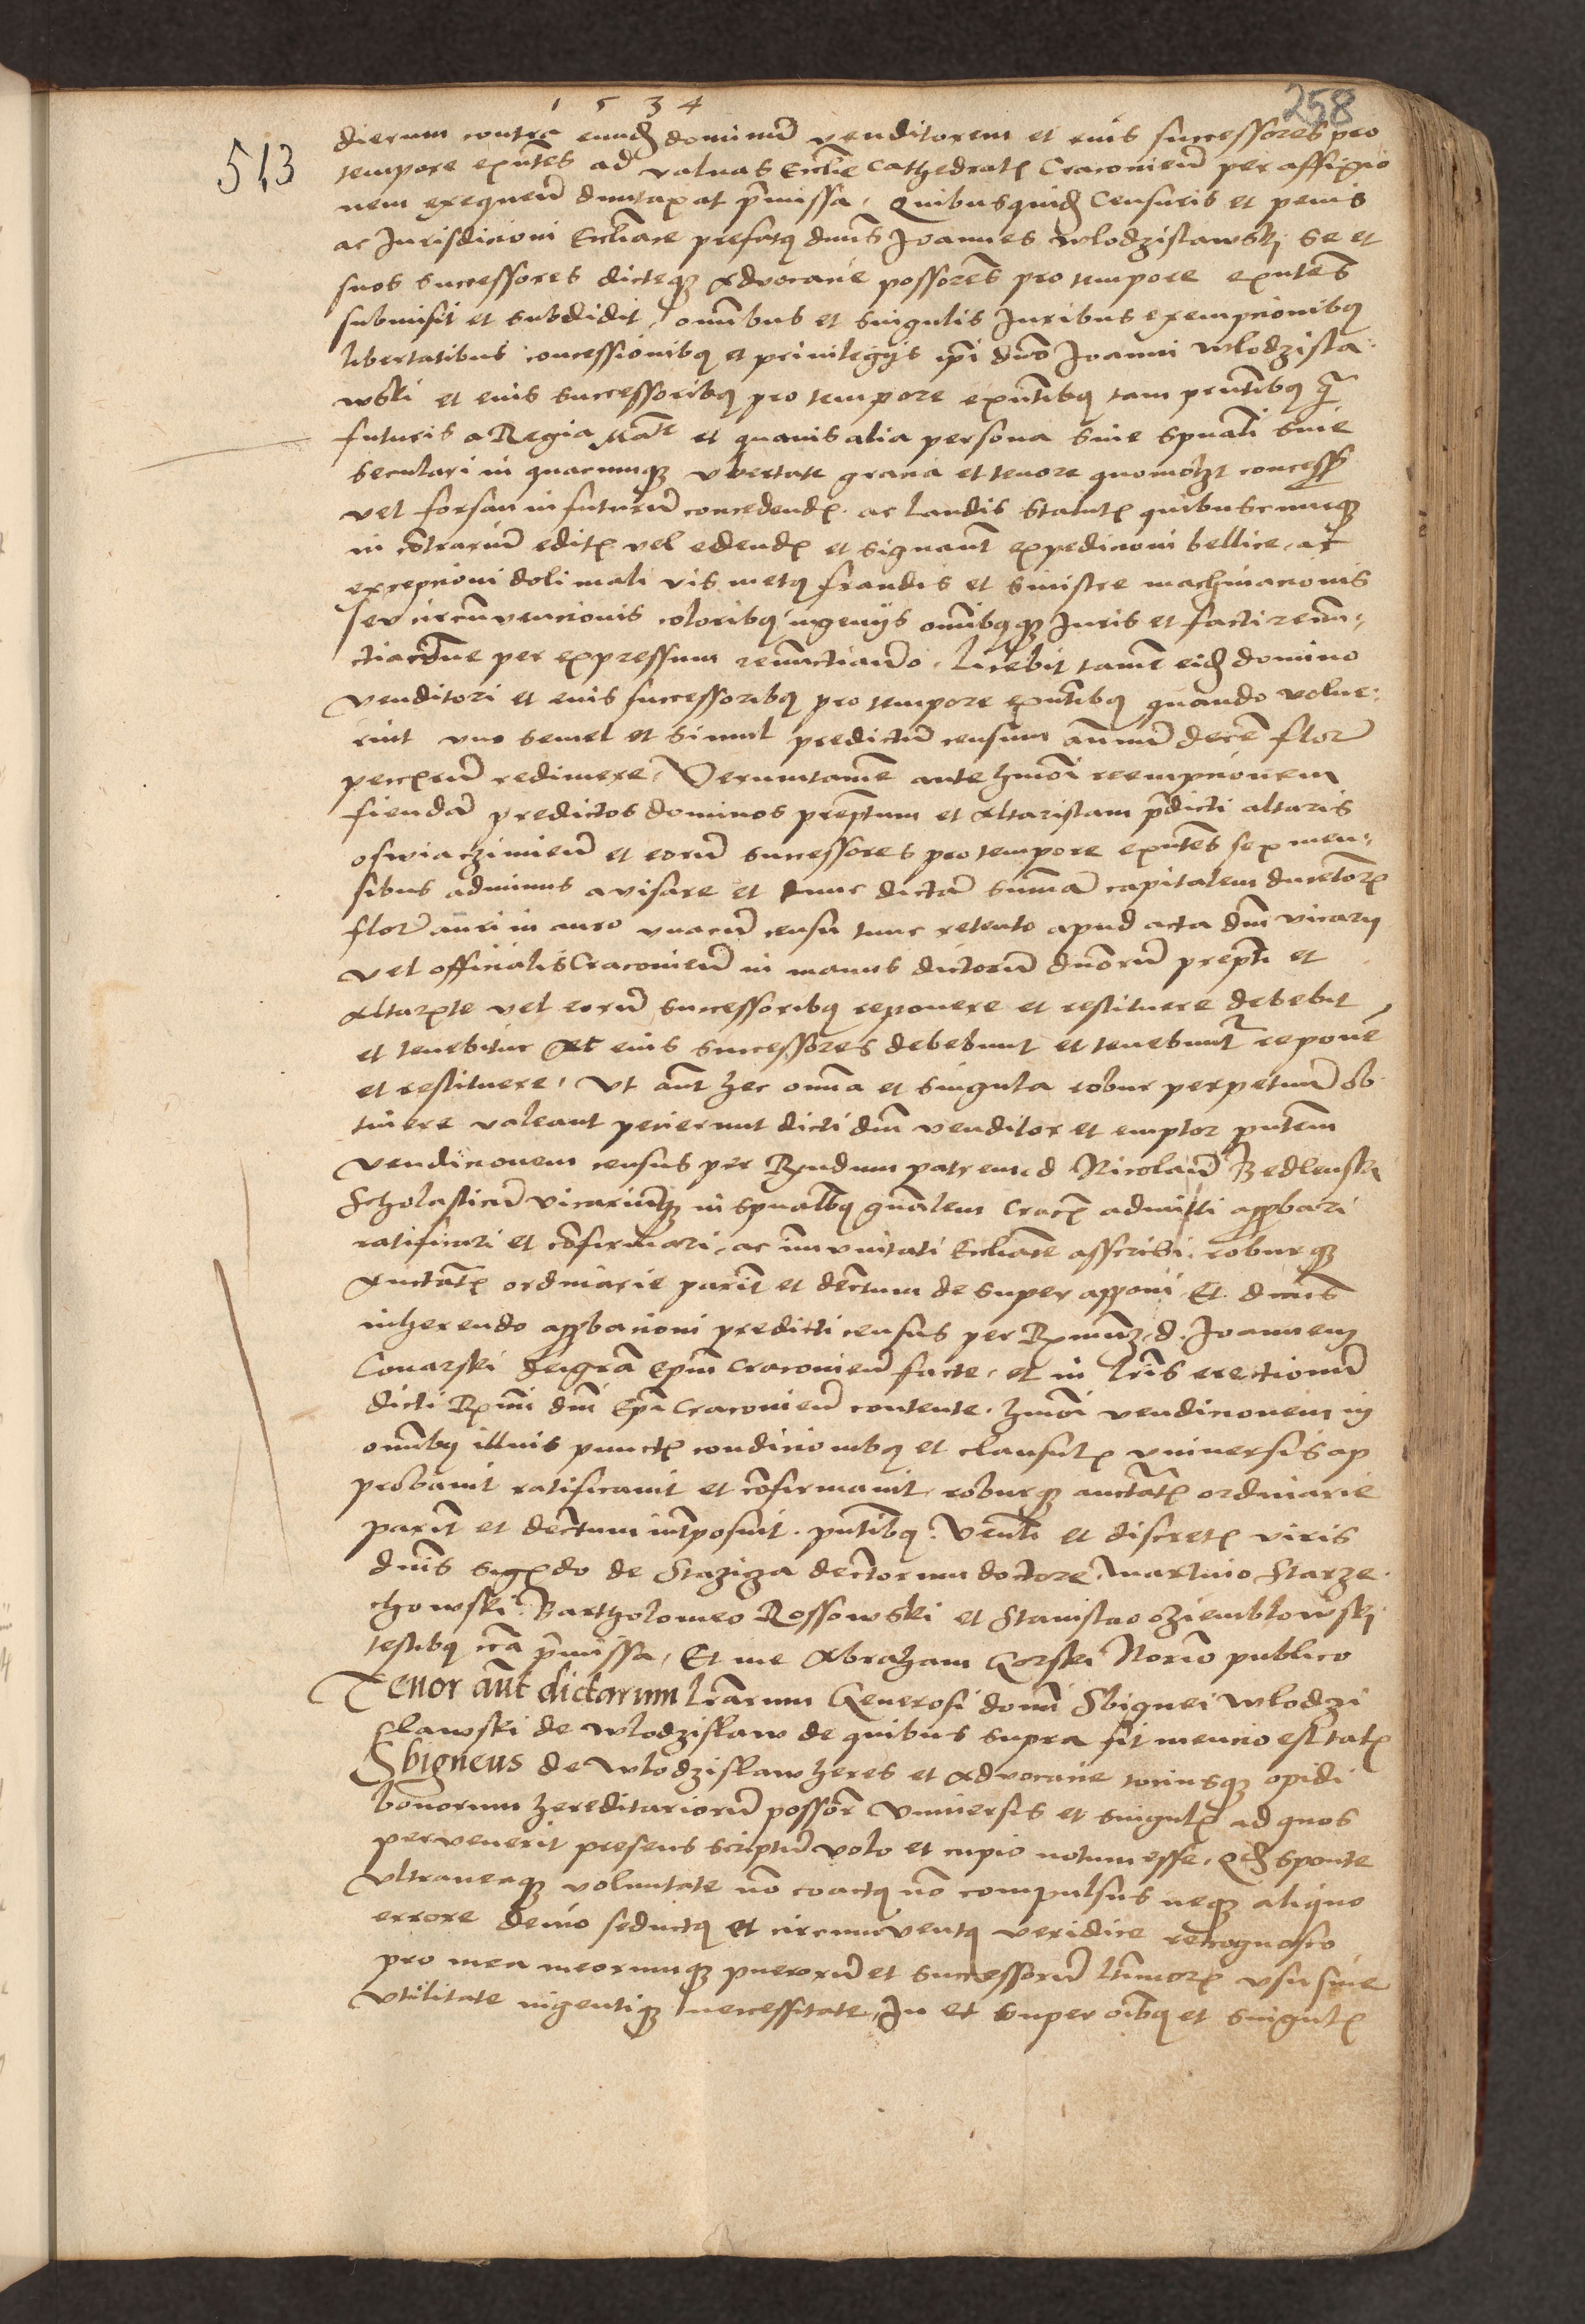 1 5 3 4
258
513
dierum contra eund dominu venditorem et eius successores pro
tempore exntes ad valuas Ecclie Cathedral Cracovien per affixio
nem exequen duntaxat pmissa. Quibusquid Censuris et penis
ac Jurisdicioni Eccliace prefatq dnus Joannes Wlodzislawskj se et
suos successores dicteq Advocacie possores pro tempore exntes
submisit et subdidit, omnibus et singulis Juribus exempcionibq
libertatibus concessionibq et privilegijs ipi dno Joanni Wlodzisla:
wski et eius successoribq pro tempore exntibq tam pntibq q
futuris a Regia Mate et quavis alia persona sive spuali sive
seculari in quacunq vbertate gracia et tenore quomolzt concess
vel forsan in futuru concedend. ac laudis Statut quibuscunq
in contrariu edit vel edend et signant expedicioni bellice, ac
excepcioni doli mali vis metq fraudis et sinistre machinacionis
seu circuvencionis coloribq ingenijs omnibqq Juris et facti renu,
ctiacone per expressum renunctiando. Licebit tame eid domino
Venditori et eius successoribq pro tempore exntibq quando volue:
rint vno semel et simul predictu censum annuu dece flor
percxru redimere, Verumtame ante hmoi reempcionem
fienda predictos dominos preptum et Altaristam pdicti altaris
osviaczimien et eoru successores pro tempore exntes sex men,
sibus adminus avisare et tunc dicta summa capitalem ducetor
flor auri in auro vnacu censu tunc retento apud acta dni vicarij
vel officialis Cracovien in manus dictoru dnoru prepti et
Altarxte vel eoru successoribq reponere et restituere debebit
et tenebitur Ac eius successores debebunt et tenebuntr repone
et restituere, Vt aut hec omnia et singula robur perpetuu ob
tinere valeant petierunt dicti dni venditor et emptor pntem
Vendicionem census per Rxndum patrem d Nicolau Bedlenski
Scholasticu vicariuq in spualibq gnalem Crac admitti approbari
ratificari et confirmari, ac imunitati Eccliace asscribi, roburq
Auctat ordinarie parit et dectum de super apponi Et dnus
inherendo approbacioni predicti census per Rxmu d. Joannem
Conarski dei gra epm Cracovien facte, et in lris erectionu
dicti Rxmi dni Epi Cracovien contente. hmoi vendicionem in
omnibq illius punct condicionibq et clausul vniversis ap
probavit ratificavit et confirmavit, roburq auctat ordinarie
parit et dectum intposuit. pntibq. Venli et discret viris
dnis Sigxdo de Stazicza dectorum doctore, Martino Starze
chowski. Bartholomeo Rossowski et Stanislao Oziemblowskj
testibq cca pmissa, Et me Abraham Gorski Norio publico
Tenor aut dictarum lrarum Generosi domi Sbignei Wlodzi
slawski de Wlodzislaw de quibus supra fit mencio est tal
Sbigneus de Wlodzislaw heres et Advocacie tociusq opidi
bonorum hereditarioru possor Vniversis et singul ad quos
pervenerit presens scriptu volo et cupio notum esse, Qd sponte
Vltraneaq voluntate no coactq no compulsus neq aliquo
errore devio seductq et circumventq veridice recognosco
pro mea meorumq pueroru et successoru ltimor vsu sive
vtilitate vigentiq necessitate, In et super oibq et singul